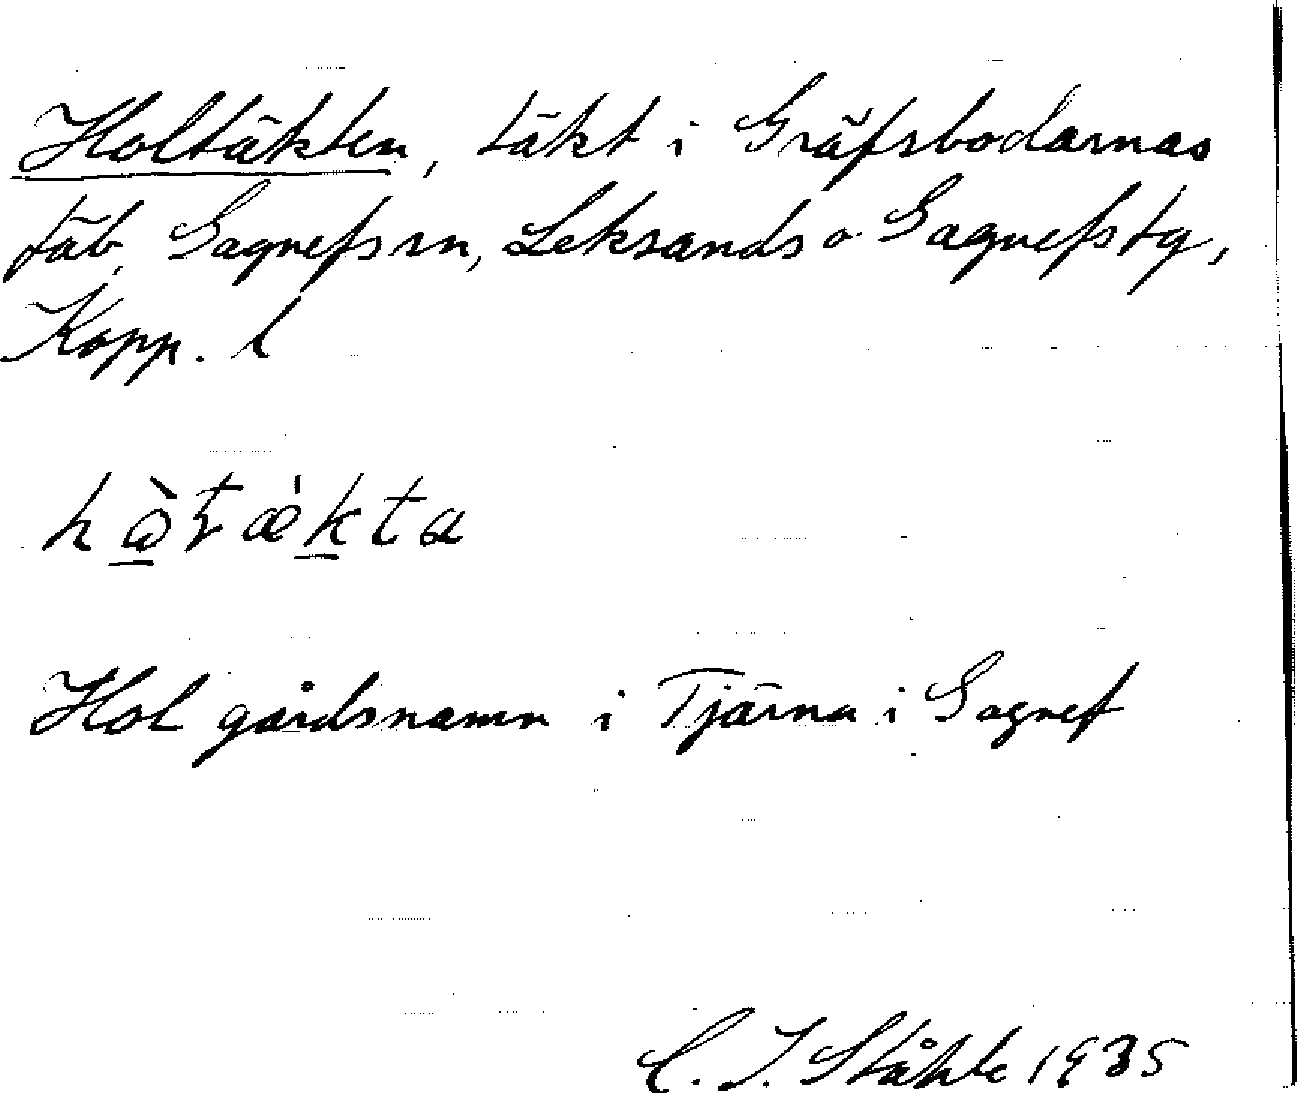 Holtäkten, täkt i Gräfsbodarnas
fäb, Gagnefs sn, Leksands o Gagnefs tg,
Kopp. l
Hol gårdsnamn i Tjärna i Gagnef
C. I. Ståhle 1935